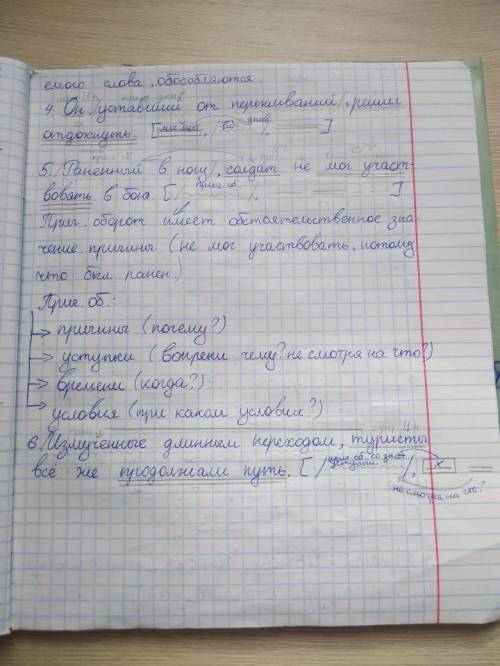 емого слова, обособляются.
4. Он, /уставший от переживаний/, решил
отдохнуть. [
5. /Раненный в ногу/, солдат не мог участ-
вовать в бою. [/прич. об./, ]
Прич. оборот имеет обстоятельственное зна-
чение причины (не мог участвовать, потому
что был ранен.)
Прич. об.:
→ причины (почему?)
→ уступки (вопреки чему? не смотря на что?)
→ времени (когда?)
условия (при каком условии?)
6. Измученные длинным переходом, туристы
всё же продолжали путь. [/прич. об. со знач. уступки/, х
не смотря на что?